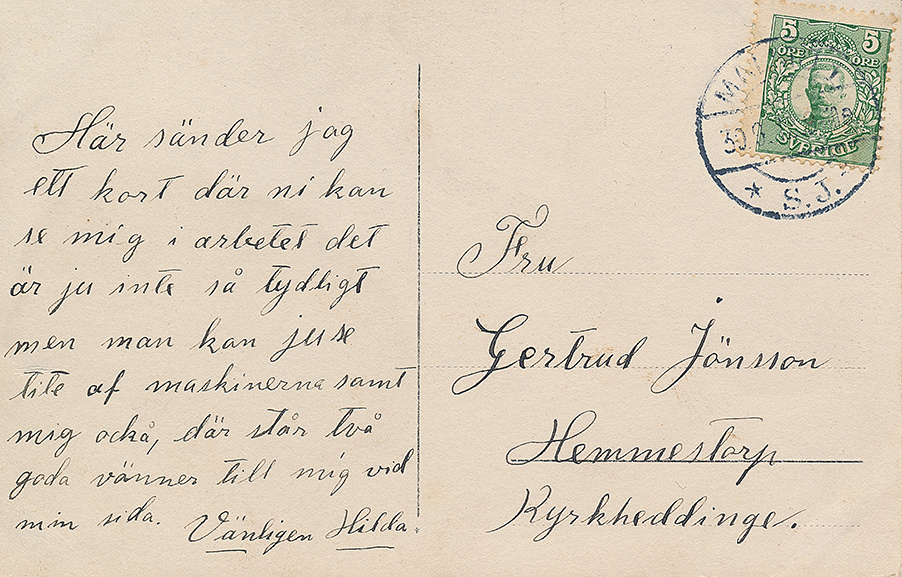 Här sänder jag
ett kort där ni kan
se mig i arbetet det
är ju inte så tydligt
men man kan ju se
lite af maskinerna samt
mig ockå, där står två
goda vänner till mig vid
min sida. Vänligen Hilda
5 5
ÖRE ÖRE
SVERIGE
* S.J. *
Fru
Gertrud Jönsson
Hemmestorp
Kyrkheddinge.